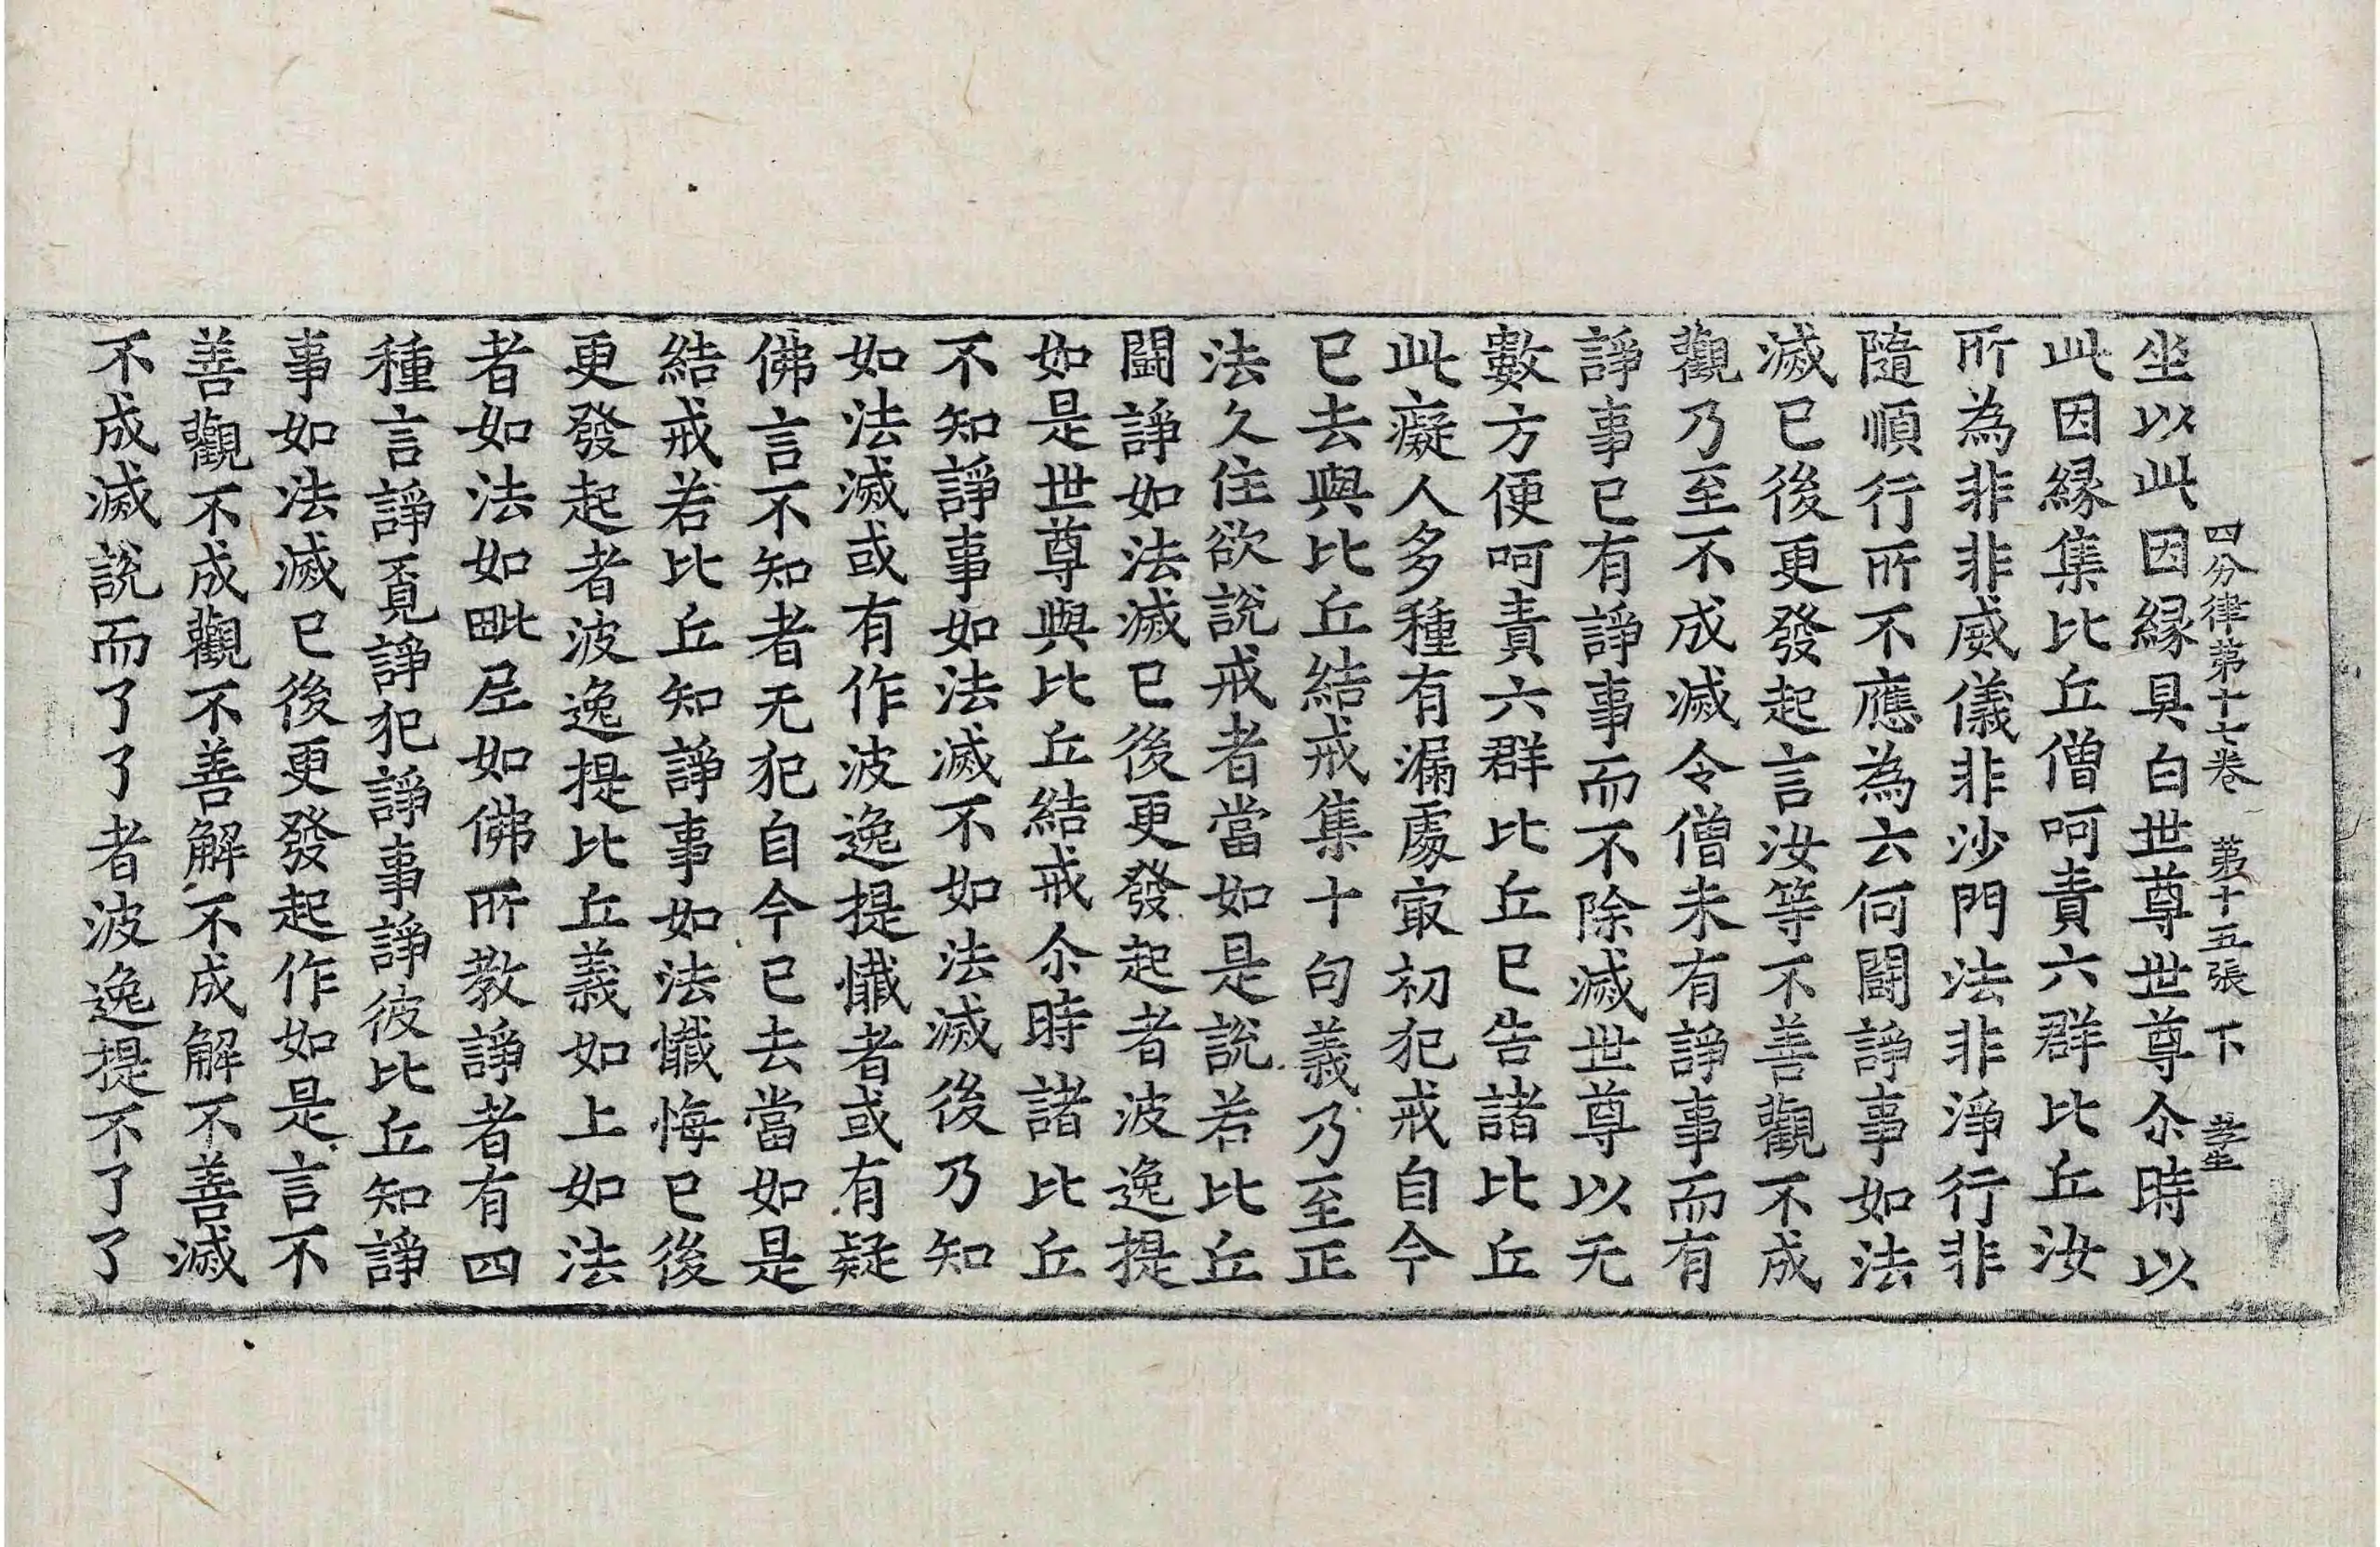 四分律第十七卷 第十五張 下
坐以此因緣具白世尊世尊尒時以
此因緣集比丘僧呵責六群比丘汝
所為非非威儀非沙門法非淨行非
隨順行所不應為云何鬪諍事如法
滅已後更發起言汝等不善觀不成
觀乃至不成滅令僧未有諍事而有
諍事已有諍事而不除滅世尊以无
數方便呵責六群比丘已告諸比丘
此癡人多種有漏處㝡初犯戒自今
已去與比丘結戒集十句義乃至正
法久住欲說戒者當如是說若比丘
鬪諍如法滅已後更發起者波逸提
如是世尊與比丘結戒尒時諸比丘
不知諍事如法滅不如法滅後乃知
如法滅或有作波逸提懺者或有疑
佛言不知者无犯自今已去當如是
結戒若比丘知諍事如法懺悔已後
更發起者波逸提比丘義如上如法
者如法如毗尼如佛所教諍者有四
種言諍覓諍犯諍事諍彼比丘知諍
事如法滅已後更發起作如是言不
善觀不成觀不善解不成解不善滅
不成滅說而了了者波逸提不了了